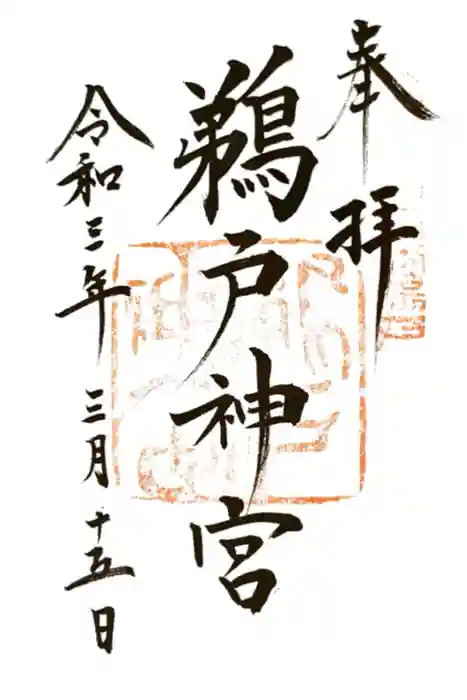 奉拝
鵜戸神宮
令和三年 三月 十五日